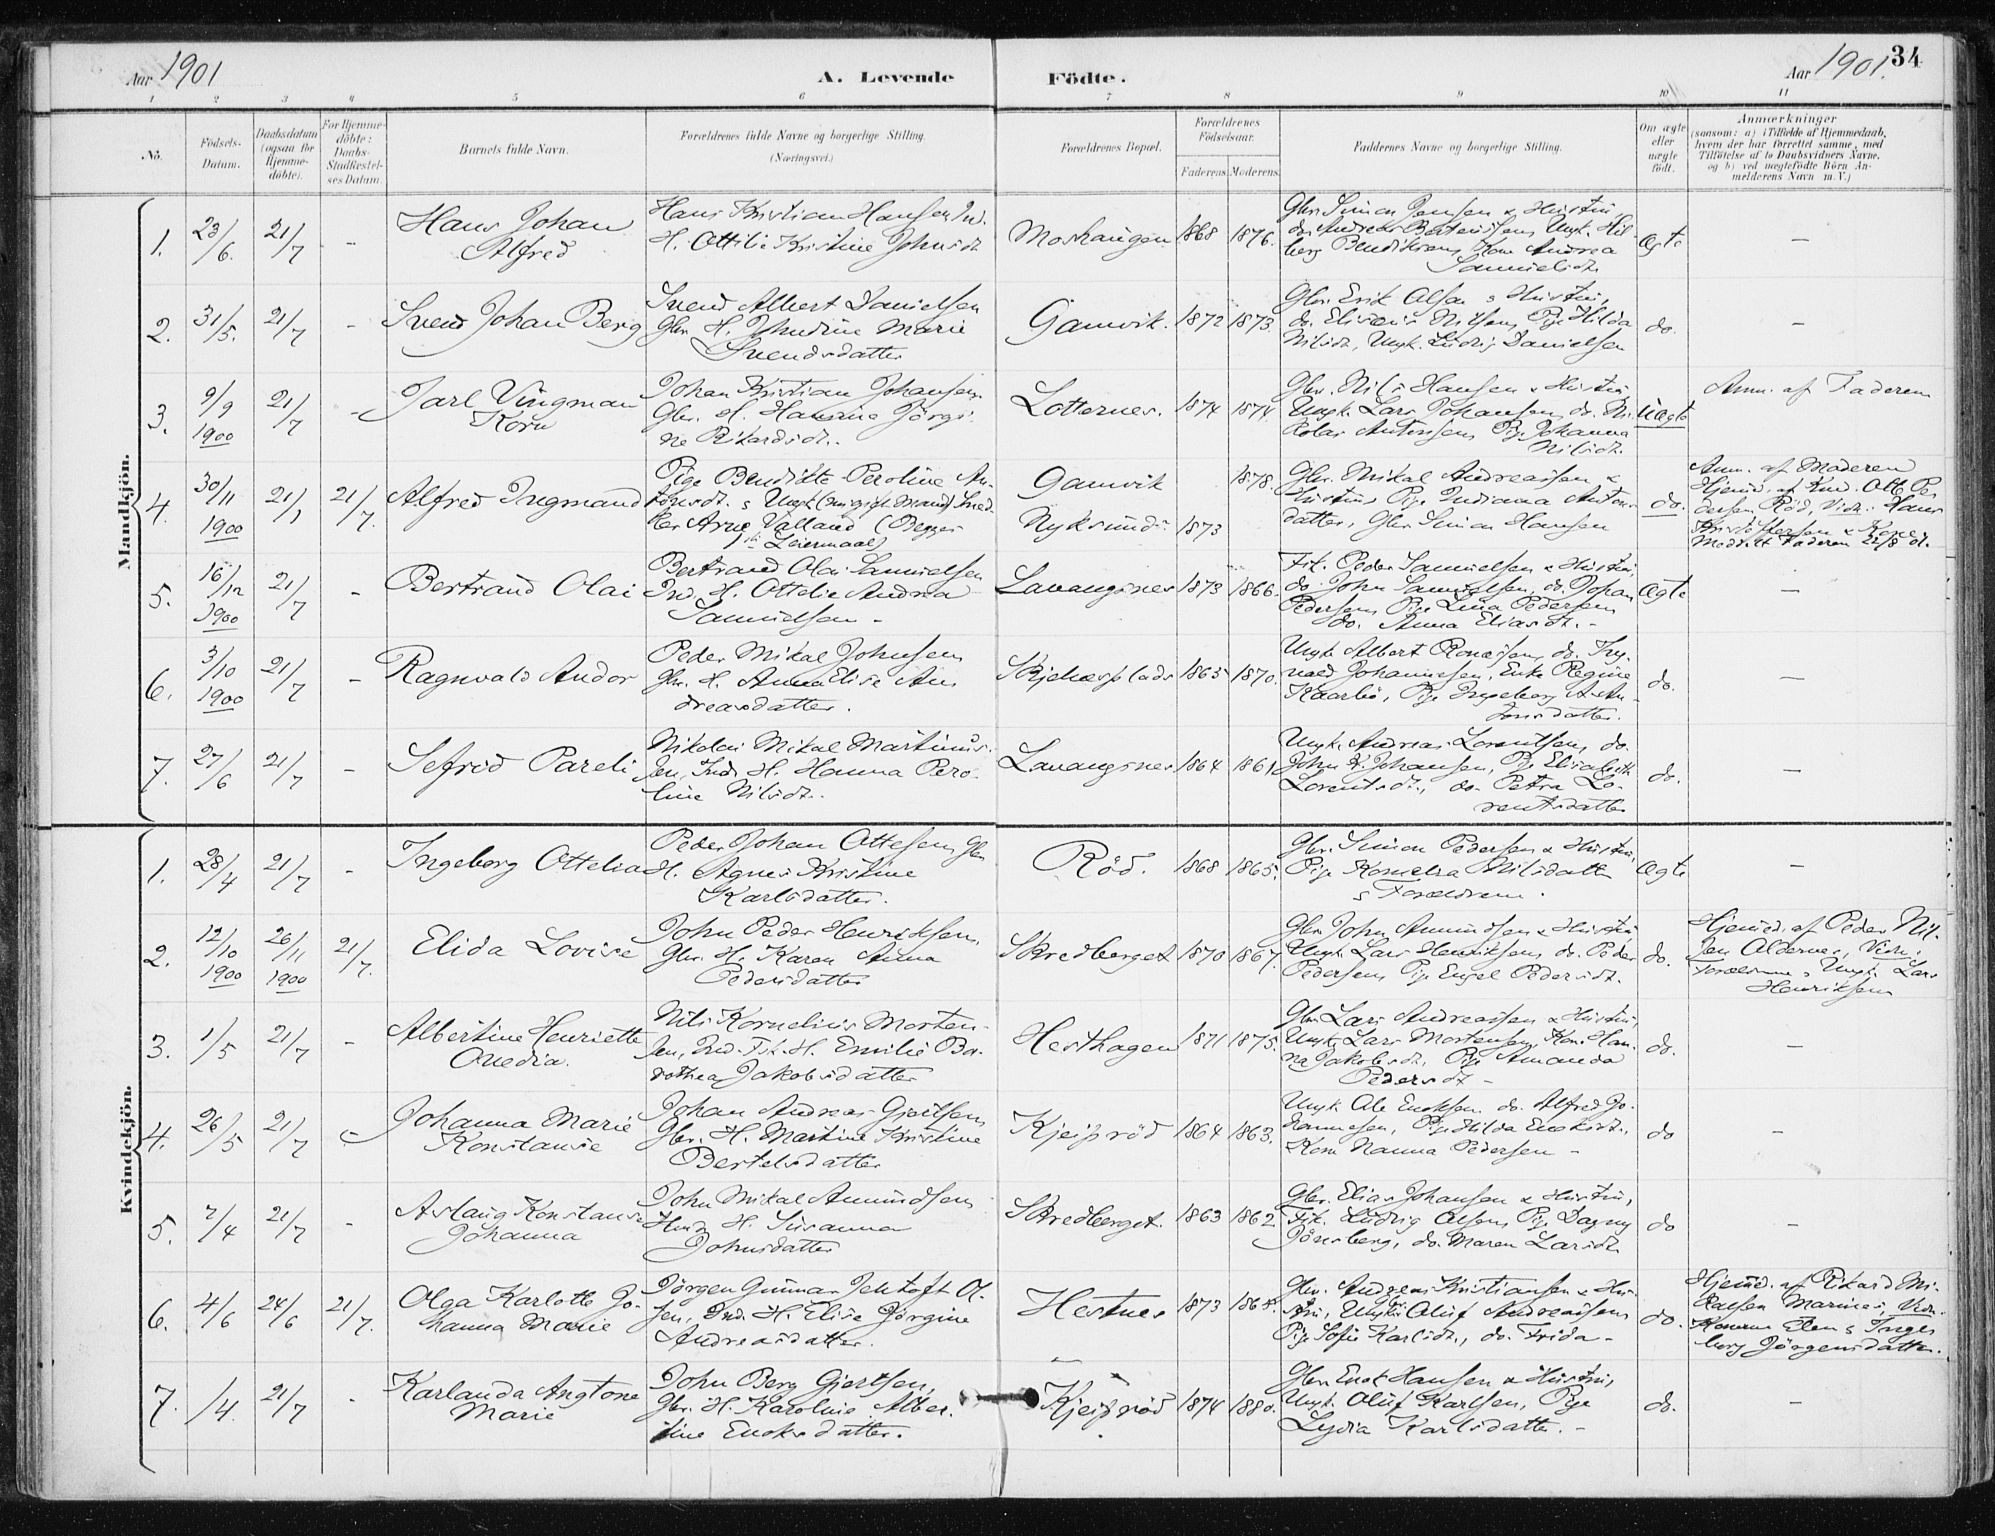 Aar 1901
A. Levende Födte.
Aar 1901.
34
1 2 3 4 5 6 7 8 9 10 11
No.
Födsels-Datum.
Daabsdatum (ogsaa for Hjemme-döbte).
For Hjemme-döbte: Daabs-Stadfæstel-ses Datum.
Barnets fulde Navn.
Forældrenes fulde Navne og borgerlige Stilling.
(Næringsvei.)
Forældrenes Bopæl.
Forældrenes Födselsaar.
Faderens. Moderens.
Faddernes Navne og borgerlige Stilling.
Om ægte eller uægte födt.
Anmærkninger
(saasom: a) i Tilfælde af Hjemmedaab, hvem der har forrettet samme, med Tilföielse af to Daabsvidners Navne, og b) ved uægtefödte Börn Anmelderens Navn m. V.)
Mandkjön.
1. 23/6. 21/7 - Hans Johan
Alfred
Hans Kristian Hansen Ind.
H. Ottilie Kristine Johnsdt.
Moshaugen 1868 1876.
Gbr. Simon Jensen & Hustru,
do. Andreas Berteussen, Ungk. Hil-
berg Bendiksen, Kone Andrea
Samuelsdt.
Ægte -
2. 31/5. 21/7 - Svend Johan Berg
Svend Albert Danielsen
Gbr. H. Jhudine Marie
Svendsdatter
Gamvik. 1872 1873.
Gbr. Erik Olsen & Hustru,
do. Nilsen, Pige Hilda
Nilsdt., Ungk. Ludvig Danielsen
do. -
3. 9/9 1900 21/7 - Jarl Vingman
Korn
Johan Kristian Johansen
Gbr. H. Hansine Jörgi-
ne Rikardsdt.
Lotternes. 1874 1874.
Gbr. Nils Hansen & Hustru,
Ungk. Lars Johansen, do. Ni-
kolai Antonsen, Pige Johanna
Nilsdt.
Uægte
Anm. af Faderen
4. 30/11 1900 21/1 21/7. Alfred Ingmand
Pige Bendikte Peroline An-
tonsdt. & Ungk. (nu gift Mand) Sned-
ker Arne Valland (Begges
1ste Leiermaal)
Gamvik 1878.
Nyksund 1873
Gbr. Mikal Andreassen &
Hustru, Pige Indianna Antons-
datter, Gbr. Simon Hansen
do.
Anm. af Moderen
Hjemd. af Kml. Otto Pe-
dersen Röd, Vidn.: Hans
Kristoffersen & Kone.
Modt. af Faderen 22/8 01.
5. 16/12 1900 21/7 - Bertrand Olai
Bertrand Olai Samuelsen
Ind. H. Ottelie Andrea
Samuelsen -
Lavangsnes 1873 1866.
Fisk. Peder Samuelsen & Hustru,
do. John Samuelsen, do. Johan
Pedersen, Pige Lina Pedersen
do. Anna Eliasdt. -
Ægte -
6. 3/10 1900 21/7 - Ragnvald Andor
Peder Mikal Johnsen
Gbr. H. Anna Elise An-
dreasdatter.
1865 1870.
Ungk. Albert do. Try-
Johannesen, Enke Regine
Kaarbö, Pige Ingeborg
do. -
7. 27/6 21/7 - Sefrid Pareli
Nikolai Mikal Martinus-
sen, Ind. H. Hanna Pero-
line Nilsdt.
Lavangsnes 1864 1861.
Ungk. Andreas Lorentsen, do.
John K. Johansen, Pige Elisabeth
Lorentsdt., do. Petra Lo-
rentsdatter
do. -
Kvindekjön.
1. 28/4 21/7 - Ingeborg Ottelia
Peder Johan Ottesen, Gbr.
H. Agnes Kristine
Karlsdatter.
Röd. 1868 1865.
Gbr. Simon Pedersen & Hustru,
Pige Kornelia Nilsdatter
& Forældrene.
Ægte -
2. 12/10 1900 26/11 1900 21/7. Elida Lovise
John Peder Henriksen,
Gbr. H. Karen Anna
Pedersdatter
Skredberget 1870 1867.
Gbr. John Amundsen & Hustru,
Ungk. Lars Henriksen, do. Peder
Pedersen, Pige Engel Pedersdt.
do.
Hjemd. af Peder Nil-
sen Aldernes, Vidn.:
Forældrene & Ungk. Lars
Henriksen
3. 1/5 21/7 - Albertine Henriette
Ovedia.
Nils Kornelius Morten-
sen, Ind. Fisk. H. Emilie Do-
rothea Jakobsdatter
Hesthagen 1871 1875.
Gbr. Lars Andreassen & Hustru,
Ungk. Lars Mortensen, Kone Han-
na Jakobsdt., Pige Amanda
Pedersdt -
do. -
4. 26/5 21/7 - Johanna Marie
Konstanse
Johan Andreas Gjertsen
Gbr. H. Martine Kristine
Bertelsdatter
Kjeipröd 1864 1863.
Ungk. Ole Enoksen, do. Alfred Jo-
hannesen, Pige Hilda Enoksdt.,
Kone Nanna Pedersen -
do -
5. 2/4 21/7 - Aslaug Konstanse
Johanna
John Mikal Amundsen
H. Susanna
Johnsdatter
Skredberget. 1863 1862
Gbr. Elias Johansen & Hustru,
Fisk. Ludvig Olsen, Pige Dagny
Jönsberg, do. Maren Larsdt.
do -
6. 4/6 24/6 21/7. Olga Karlotte Jo-
hanna Marie
Jörgen Gunnar Jektoft Ol-
sen, Ind. H. Elise Jörgine
Andreasdatter.
Hestnes 1873
Gbr. Andreas Kristiansen & Hu-
stru, Ungk. Oluf Andreassen
Pige Sofie Karlsdt., do. Frida -
do.
Hjemd. af Rikard Mi-
kalsen Marines, Vidn.
Konerne Elen & Inge-
borg Jörgensdatter.
7. /4. 21/7 - Karlanda Angtone
Marie
John Berg Gjertsen,
Gbr. H. Karolus Alber-
tine Enoksdatter.
Kjeipröd 1874 1880.
Gbr. Enok Hansen & Hustru,
Ungk. Oluf Karlsen, Pige
Lydia Karlsdatter. -
do. -